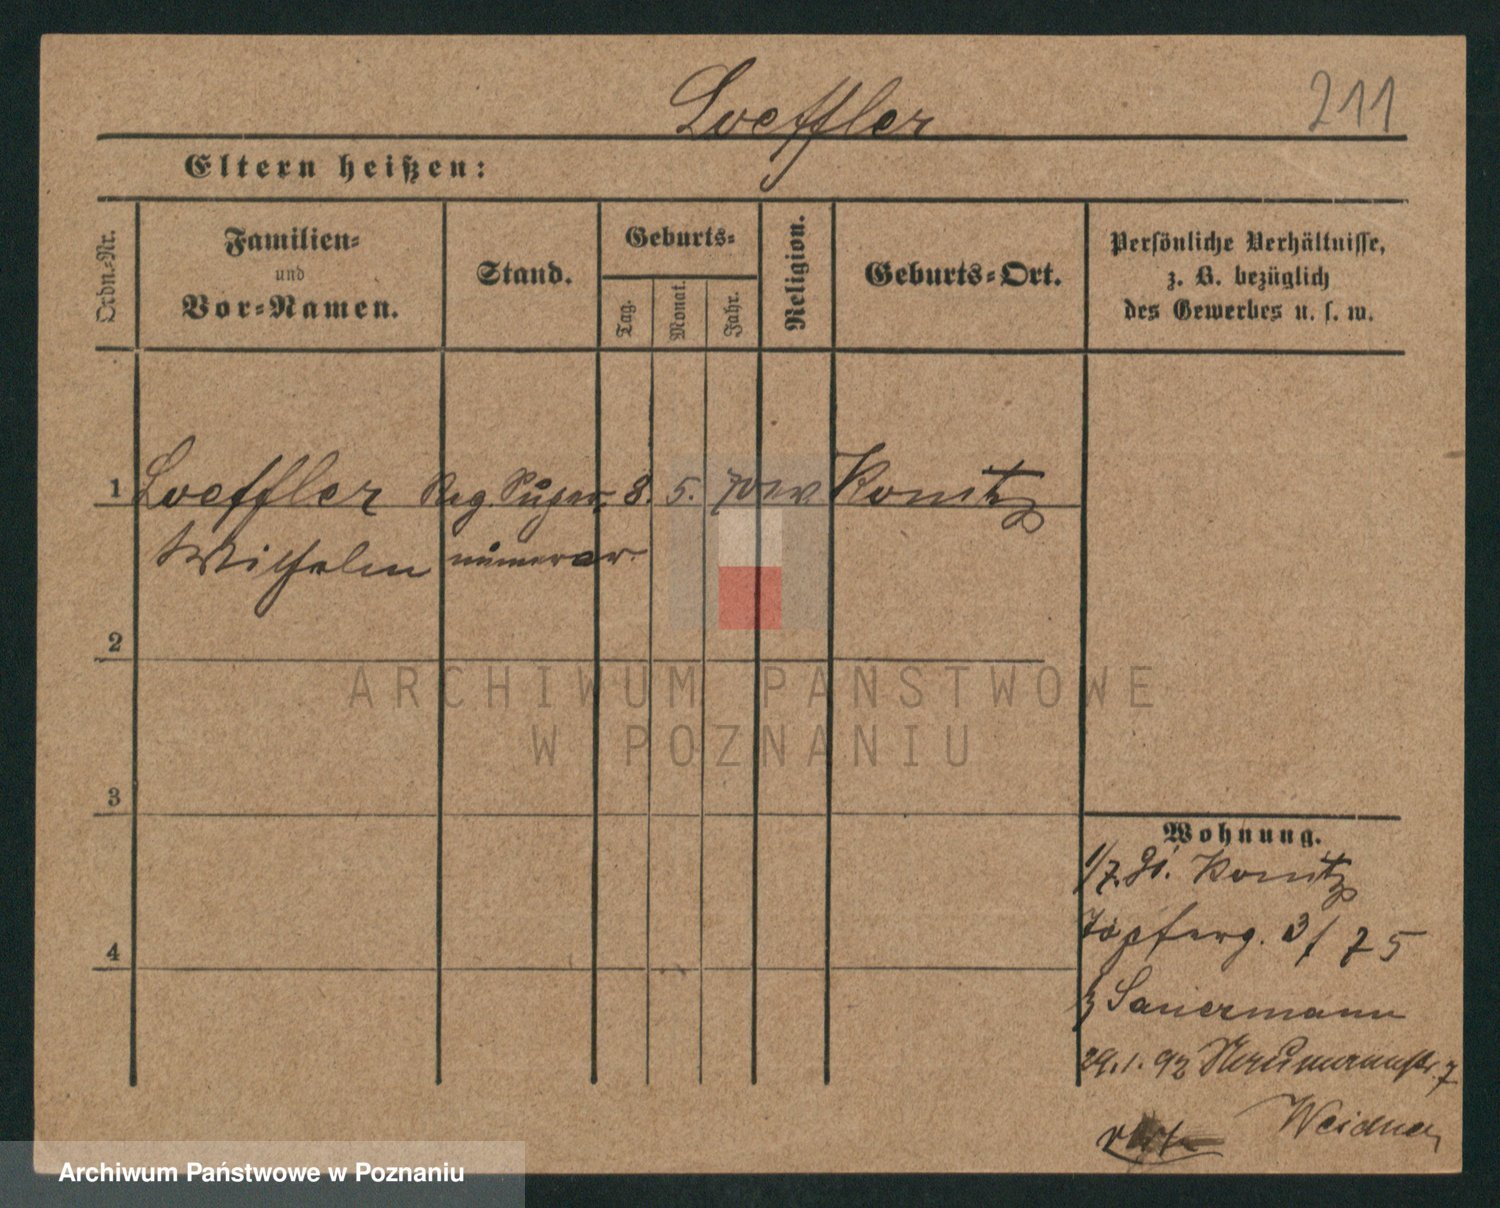 Loeffler
211
Eltern heißen:
Ordn.-Nr.
Familien-
und
Vor-Namen.
Stand.
Geburts-
Tag.
Monat.
Jahr.
Religion.
Geburts-Ort.
Persönliche Verhältnisse,
z. B. bezüglich
des Gewerbes u. s. w.
1 Loeffler Reg. Super- 8. 5. 70 ev Konitz
Wilhelm numerar
2
3
4
Wohnung.
1/7. 91. Konitz
Töpferg. 3/ 75
b Sauermann
29.1.92 Neumannstr. 7
Weidner
ARCHIWUM PAŃSTWOWE
W POZNANIU
Archiwum Państwowe w Poznaniu